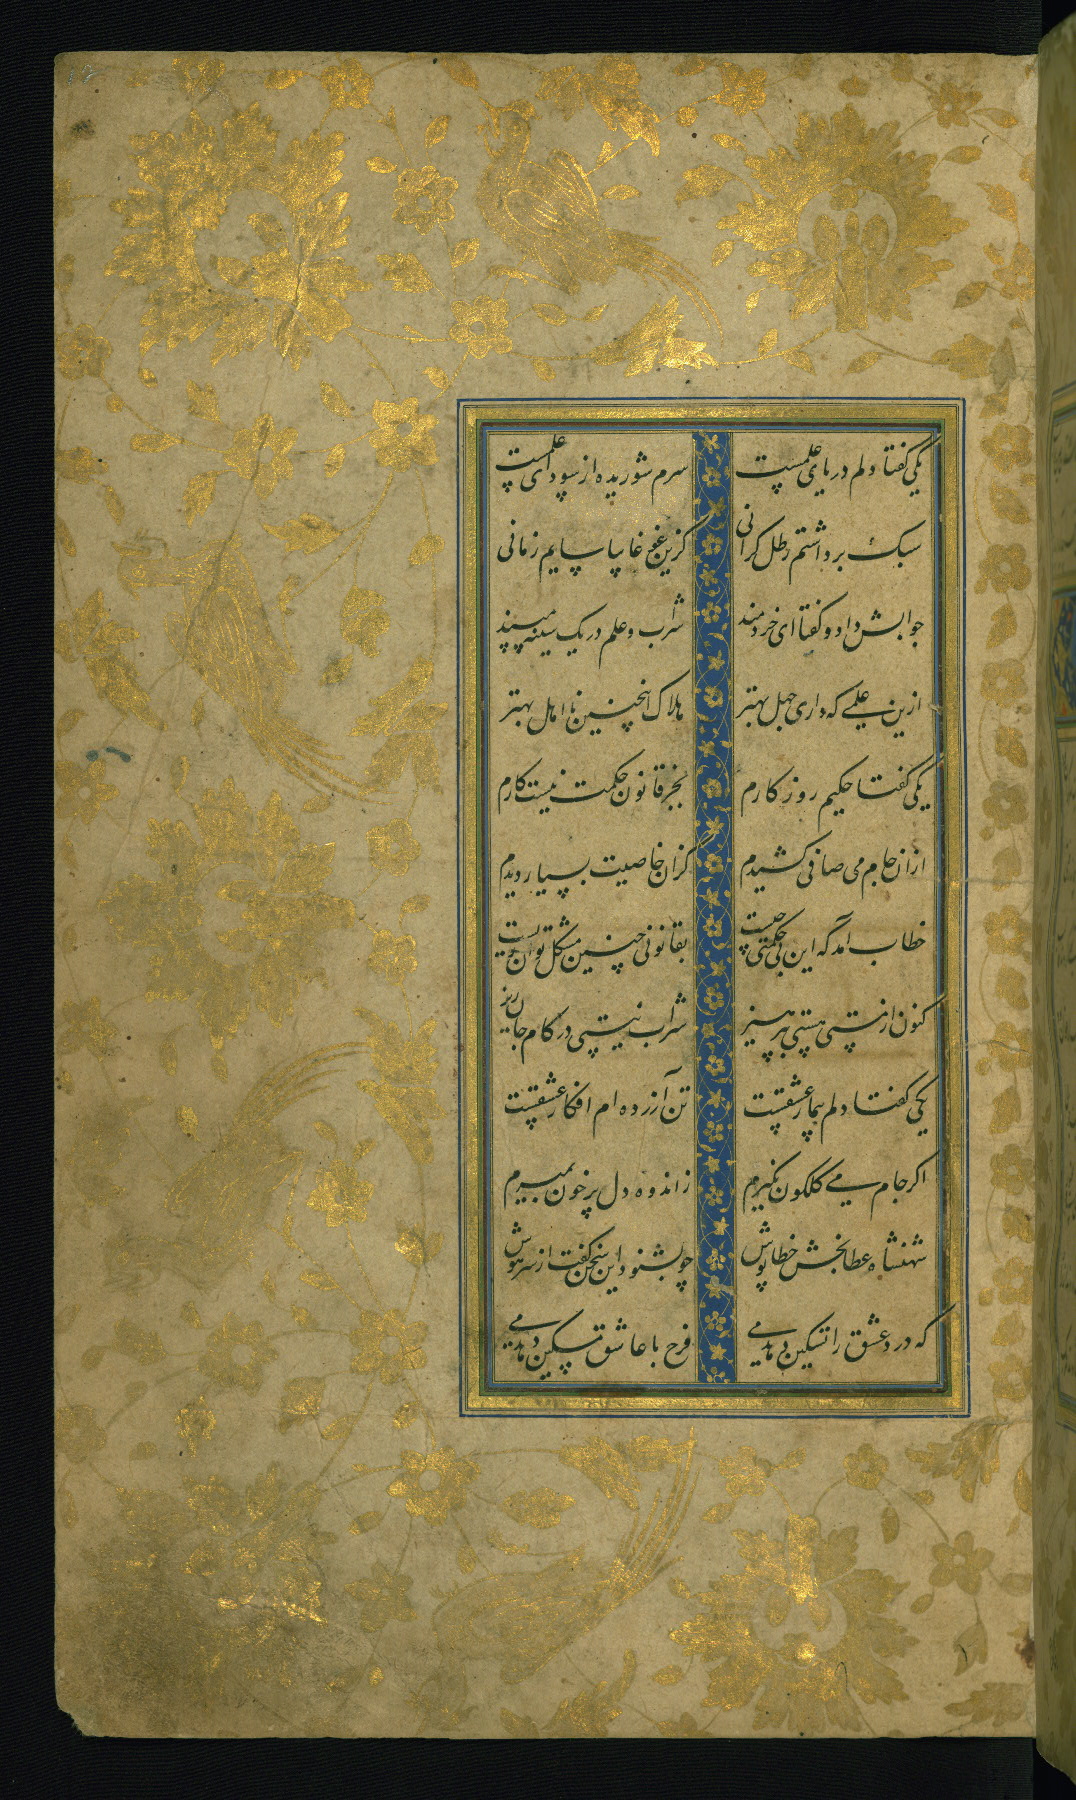 یکی گفتا دلم دریای علمست سرم شوریده از سودای علمست
سبک برداشتم رطل گرانی کزین غوغا بیاسایم زمانی
جوابش داد و گفتا ای خردمند شراب و علم در یک سینه مپسند
ازین علمی که داری جهل بهتر هلاک اینچنین نا اهل بهتر
یکی گفتا حکیم روزکارم بجز قانون حکمت نیست کارم
ازان جام می صافی کشیدم کزان خاصیت بسیار دیدم
خطاب آمد که این بی حکمتی چیست بقانونی چنین مشکل توان زیست
کنون از مستی هستی بپرهیز شراب نیستی در کام جان ریز
یکی گفتا دلم بیمار عشقست تن آزرده ام افکار عشقست
اکر جام می کلکون نکیرم ز اندوه دل پر خون بمیرم
شهنشاه عطابخش خطاپوش چو بشنود این سخن گفت از سر هوش
که درد عشق را تسکین دهد می فرح با عاشق مسکین دهد می